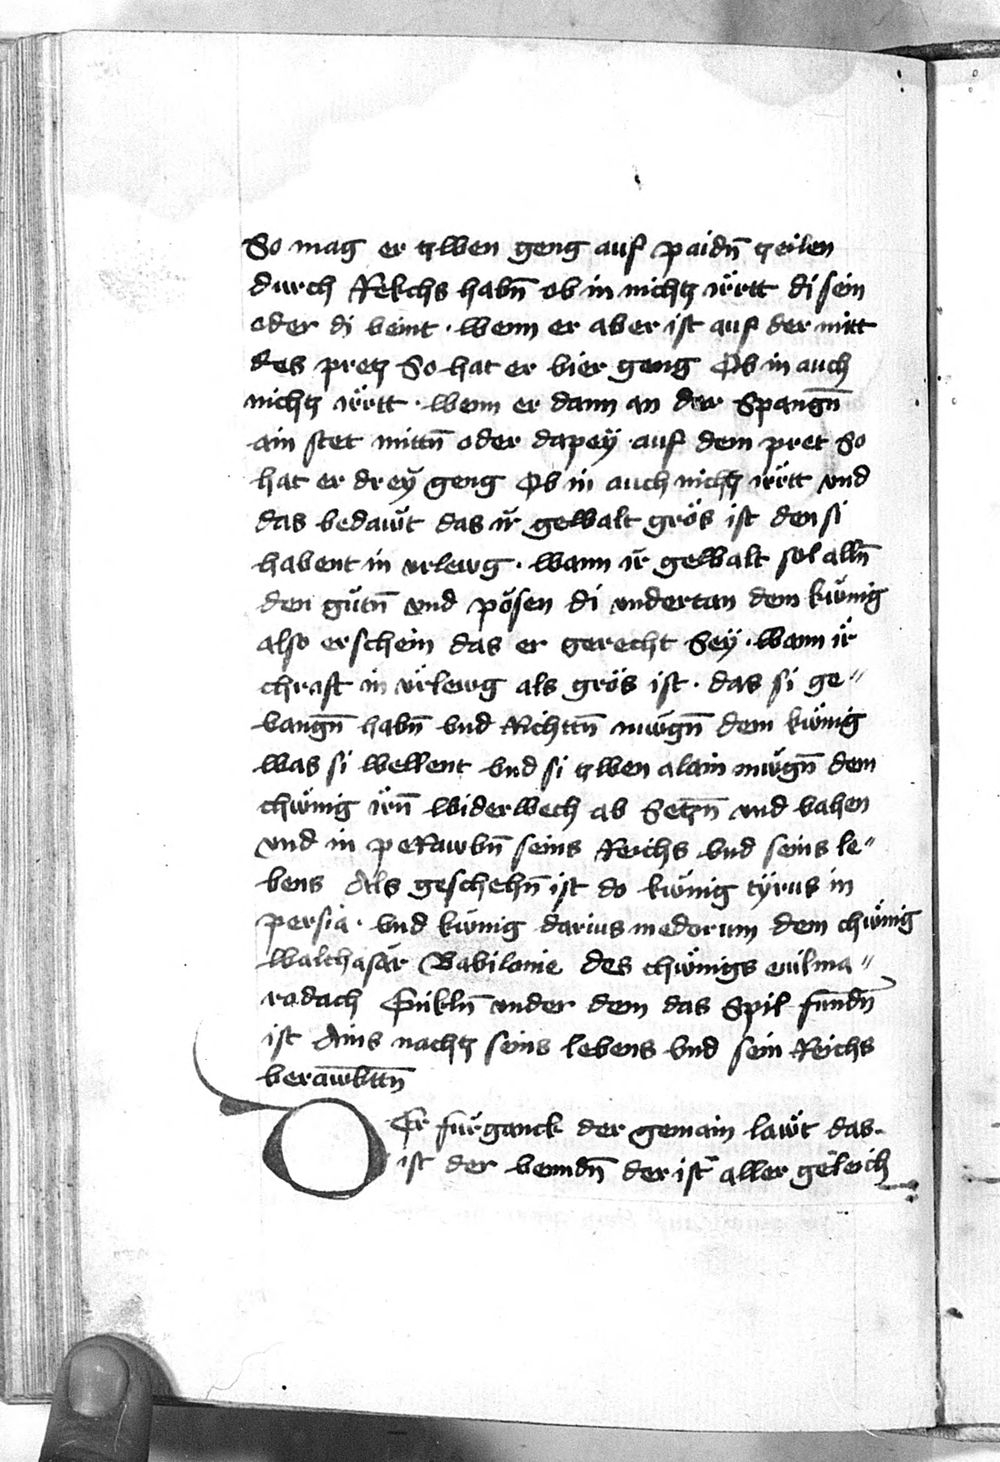 So mag er tzwen geng auf paidn̄ tzeilen
durch Rekchs habn̄ ob in nichtz irrtt di sein
oder di veint · wenn er aber ist auf der mitt
des pretz So hat er vier geng Ob in auch
nichtz irrtt · wenn er dann an der Spangn̄
ain stet mittn̄ oder dapeÿ auf dem pret So
hat er dreÿ geng Ob in auch nichtz irrtt vnd
das bedawt̋ das ir̋ gewalt grös ist den si
habent in vrlewg · wann ir̋ gewalt sol alln̄
den gůtn̄ vnd pösen di vndertan dem kűnig
also erschein das er gerecht Seÿ · wann ir̋
chraft in vrlewg als grös ist · das si ge〃
vangn̄ habn̄ vnd Richttn̄ műgn̄ dem kűnig
was si wellent vnd si tzwen alain műgn̄ dem
chűnig irn̄ widerwech ab Setzn̄ vnd vahen
vnd in peRawbn̄ seins Reichs vnd seins le〃
bens Als geschehn̄ ist do kűnig tÿrus in
persia · vnd kűnig darius medorum dem chűnig
walthasar̋ Babilonie des chűnigs euilma〃
radach Enikln̄ vnder dem das Spil fundn̄
ist Ains nachtz seins lebens vnd sein Reichs
berawbttn̄
DEr fűrganck der gemain lawt̋ das
ist der venndn̄ der ist aller geleich